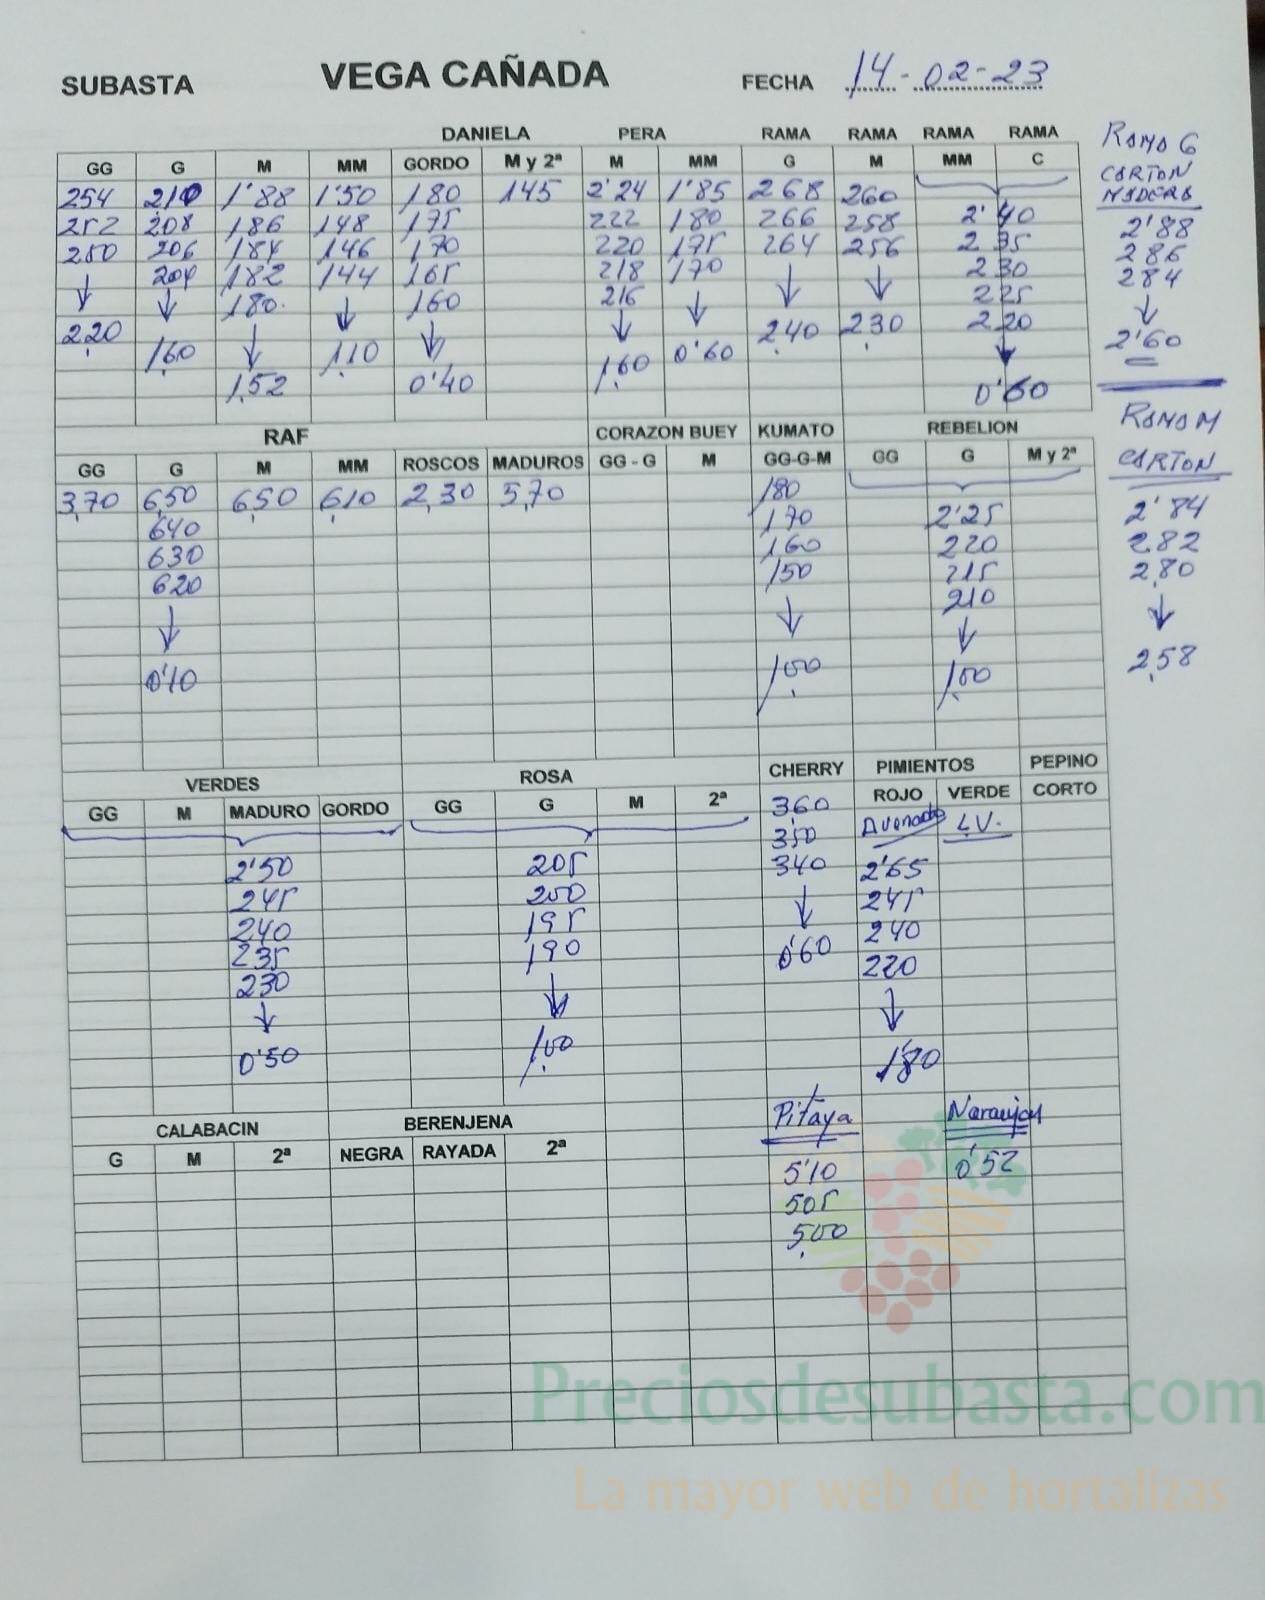 SUBASTA VEGA CAÑADA FECHA 14-02-23
DANIELA PERA RAMA RAMA RAMA RAMA
GG G M MM GORDO M y 2ª M MM G M MM C
254 210 1'88 1'50 180 145 2'24 1'85 268 260
252 208 186 148 175 222 180 266 258 2'40
250 206 184 146 170 220 175 264 256 2 35
↓ 204 182 144 165 218 170 ↓ ↓ 2 30
↓ 180 ↓ 160 216 ↓ 2 25
2,20 1,60 ↓ 1,10 ↓ ↓ 0'60 2,40 2,30 2,20
1,52 0'40 1,60 ↓
0'60
RAMA G
CARTON
MADERA
2'88
286
284
↓
2'60
RAF CORAZON BUEY KUMATO REBELION
GG G M MM ROSCOS MADUROS GG - G M GG-G-M GG G M y 2ª
3,70 6,50 6,50 6,10 2,30 5,70 180
640 170 2'25
630 160 220
620 150 215
↓ ↓ 210
↓
0'10 1,00 1,00
RAMA M
CARTON
2'84
2.82
2,80
↓
2,58
VERDES ROSA CHERRY PIMIENTOS PEPINO
GG M MADURO GORDO GG G M 2ª ROJO VERDE CORTO
3,60 L.V.
350
2'50 205 340 2'65
245 200 ↓ 245
240 195 0'60 240
235 190 220
230 ↓ ↓
↓
0'50 1,00 1'80
CALABACIN BERENJENA Pitaya Naranjas
G M 2ª NEGRA RAYADA 2ª
5'10 0'52
505
5,00
Preciosdesubasta.com
La mayor web de hortalizas